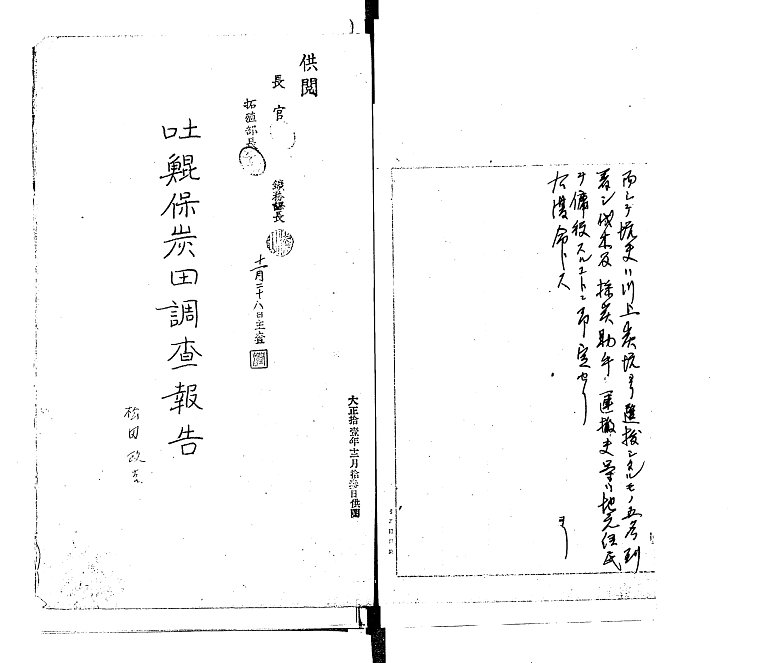 而シテ坑夫ハ川上炭坑ヨリ選抜シタルモノ五名到
着シ伐木及採炭助手、運搬夫等ハ地元住民
ヲ傭役スルコトニ予定セリ
右復命ス
供閲
長官
拓殖部長
鑛務課長
十一月二十八日主査
吐鯤保炭田調査報告
大正拾壹年十二月拾
日供閲